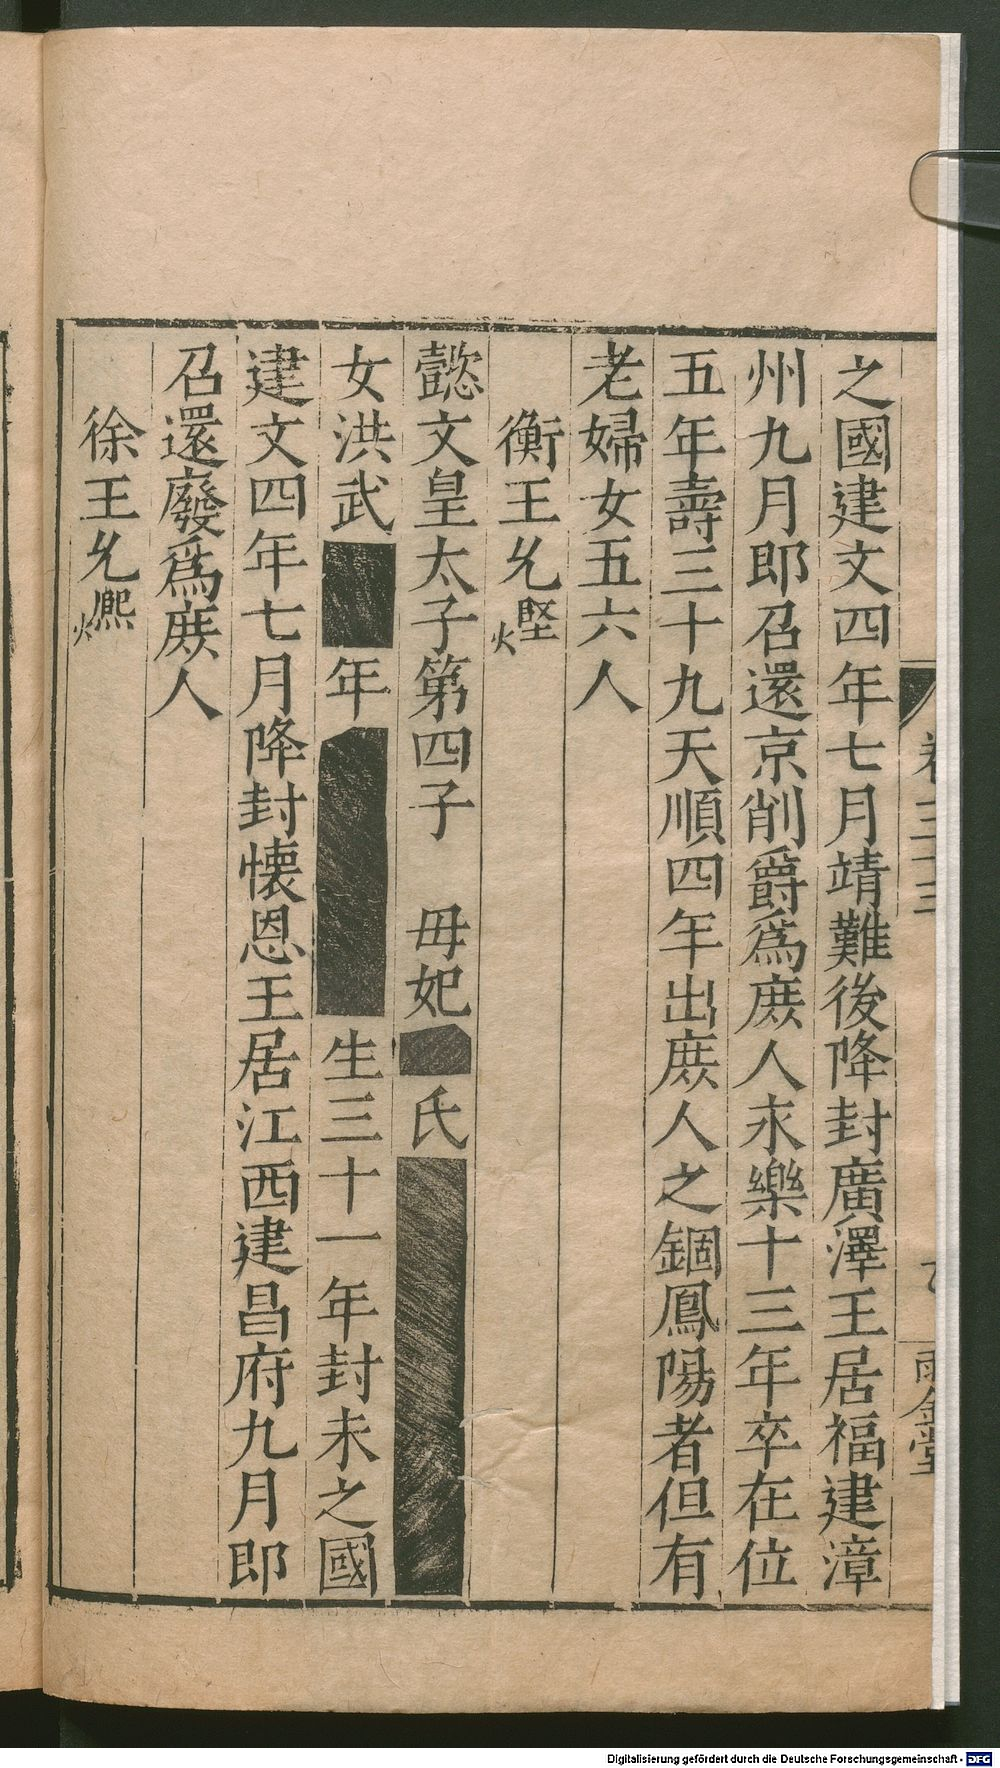 之國建文四年七月靖難後降封廣澤王居福建漳
州九月即召還京削爵爲庶人永樂十三年卒在位
五年壽三十九天順四年出庶人之錮鳳陽者但有
老婦女五六人
衡王允熞
懿文皇太子第四子 毋妃 氏
女洪武 年 生三十一年封未之國
建文四年七月降封懷恩王居江西建昌府九月即
召還廢爲庶人
徐王允熈
Digitalisierung gefördert durch die Deutsche Forschungsgemeinschaft - DFG